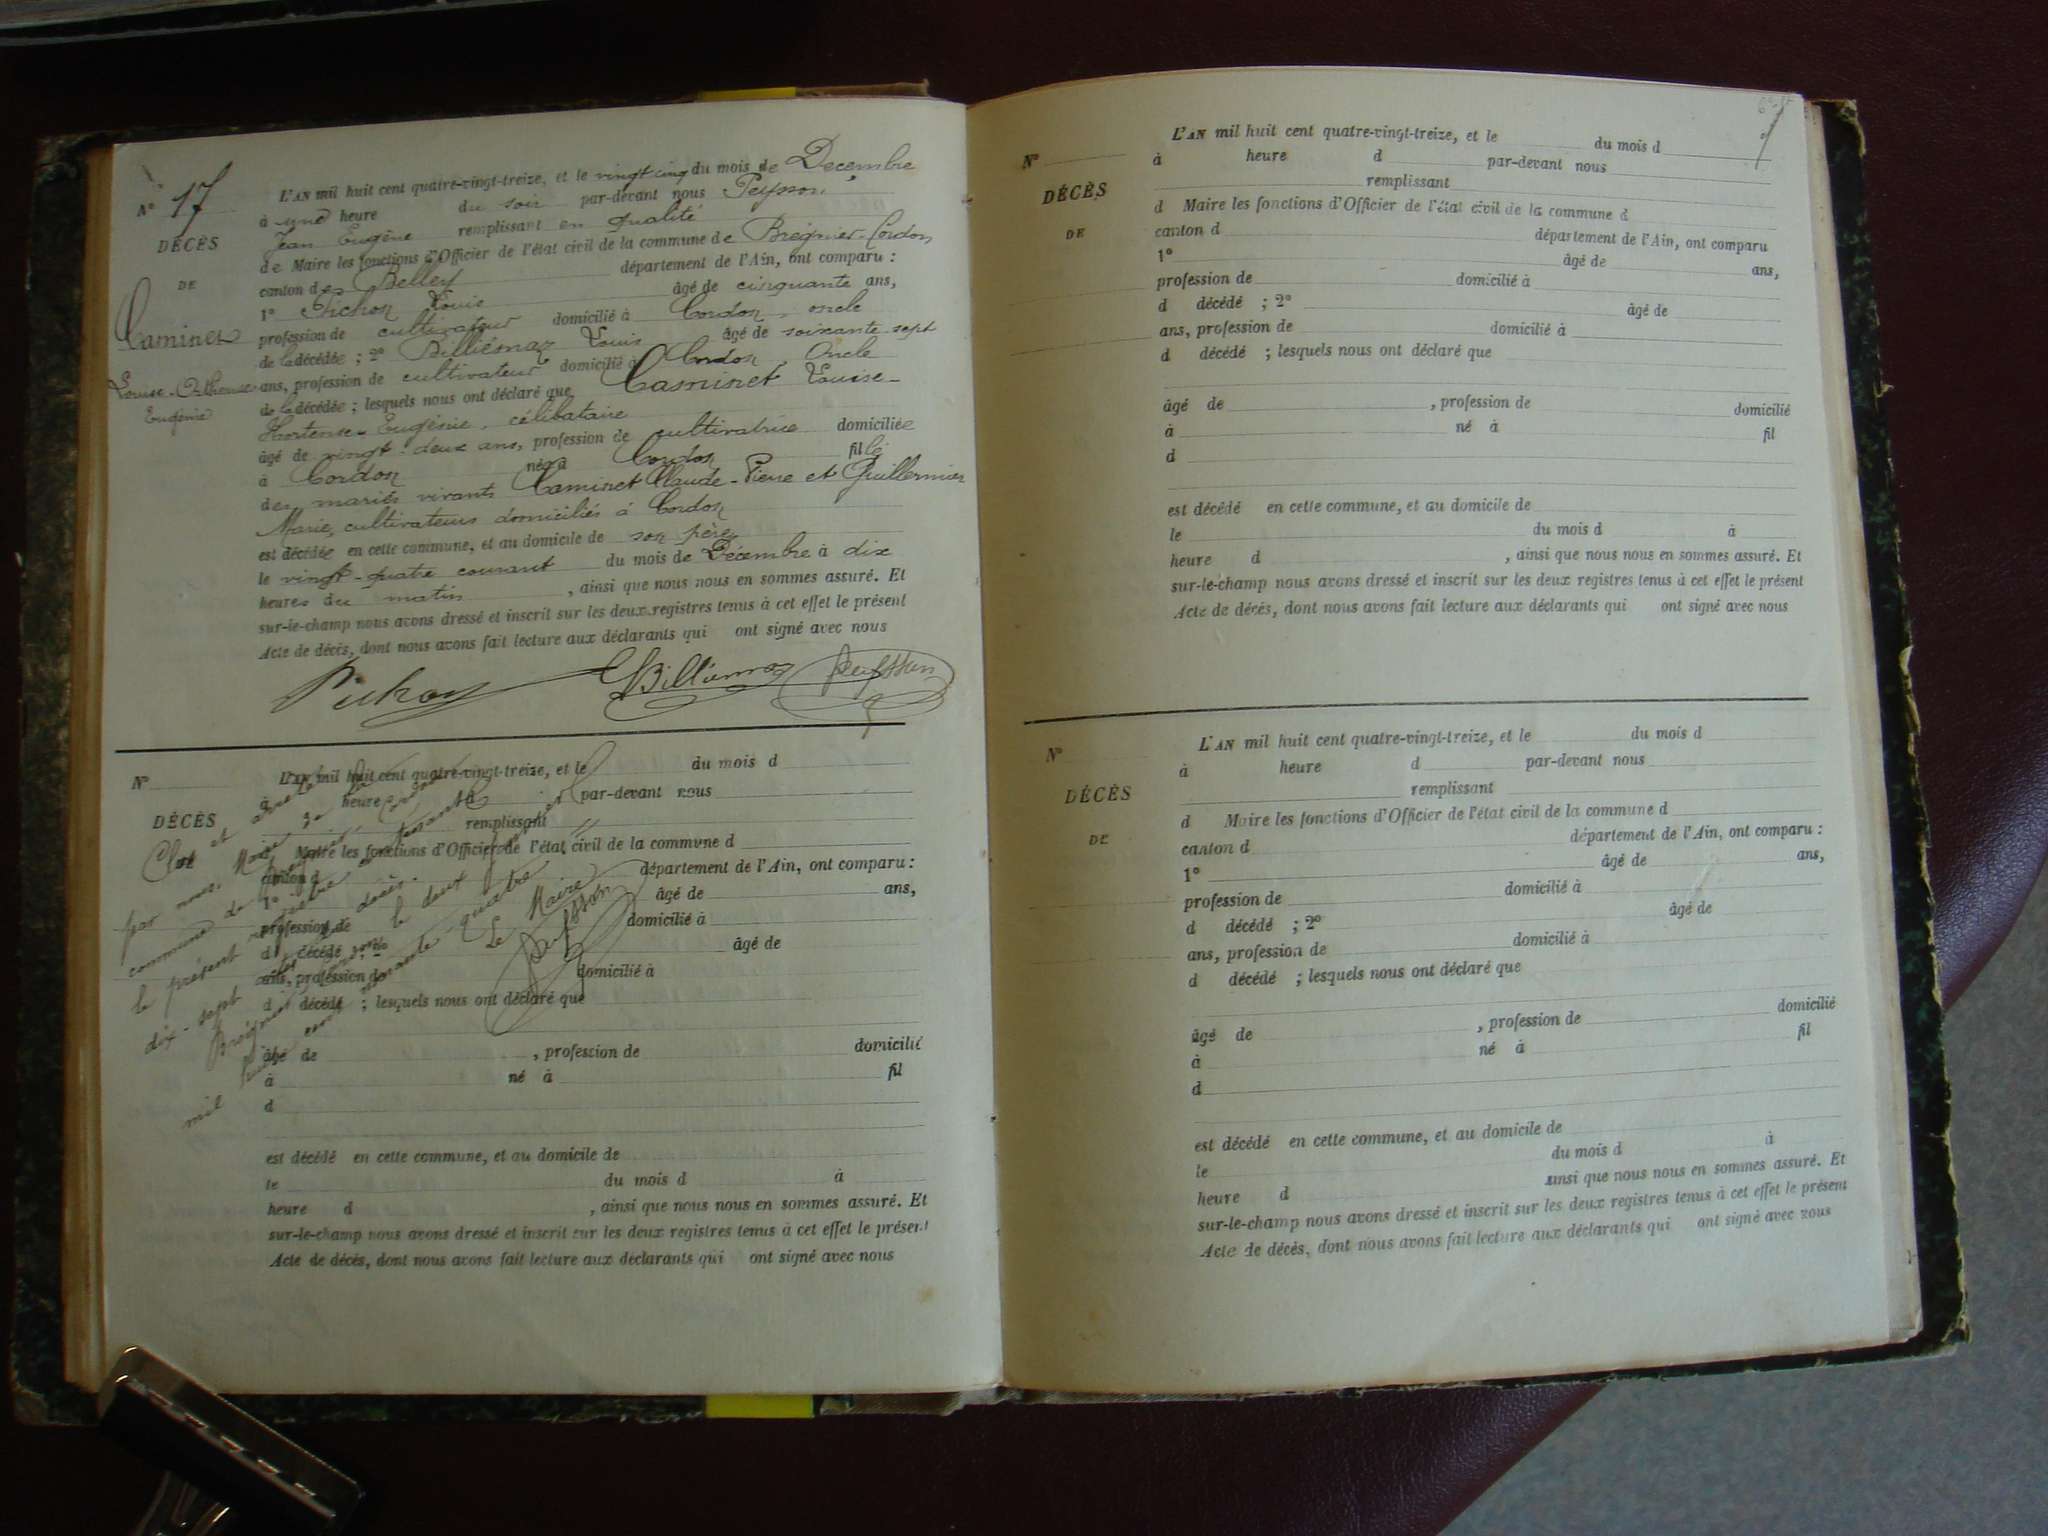 N° 17
DÉCÈS
DE
Caminet
Louise-Orthense
Eugénie
L'AN mil huit cent quatre-vingt-treize, et le vingt cinq du mois de Décembre
à une heure du soir par-devant nous Peysson,
Jean Eugène remplissant en qualité
de Maire les fonctions d'Officier de l'état civil de la commune de Brégnier-Cordon
canton de Belley département de l'Ain, ont comparu :
1° Pichon Louis âgé de cinquante ans,
profession de cultivateur domicilié à Cordon, oncle
de la décédée ; 2° Billiémaz Louis âgé de soixante sept
ans, profession de cultivateur domicilié à Cordon, Oncle
de la décédée ; lesquels nous ont déclaré que Caminet Louise-
Hortense-Eugénie, célibataire
âgé de vingt-deux ans, profession de cultivatrice domiciliée
à Cordon née à Cordon fille
des mariés vivants Caminet Claude-Pierre et Guillermier
Marie, cultivateurs domiciliés à Cordon
est décédée en cette commune, et au domicile de son père
le vingt-quatre courant du mois de Décembre à dix
heures du matin, ainsi que nous nous en sommes assuré. Et
sur-le-champ nous avons dressé et inscrit sur les deux registres tenus à cet effet le présent
Acte de décès, dont nous avons fait lecture aux déclarants qui ont signé avec nous
Pichon Billiémaz Peysson
N°
DÉCÈS
L'AN mil huit cent quatre-vingt-treize, et le du mois d
à heure d par-devant nous
remplissant
Maire les fonctions d'Officier de l'état civil de la commune d
canton d département de l'Ain, ont comparu :
1° âgé de ans,
profession de domicilié à
d décédé ; 2° âgé de
ans, profession de domicilié à
d décédé ; lesquels nous ont déclaré que
âgé de , profession de domicilié
à né à fil
d
est décédé en cette commune, et au domicile de
le du mois d à
heure d , ainsi que nous nous en sommes assuré. Et
sur-le-champ nous avons dressé et inscrit sur les deux registres tenus à cet effet le présent
Acte de décès, dont nous avons fait lecture aux déclarants qui ont signé avec nous
Clos et arrêté
par nous, Maire de la
commune de
le présent registre
dix-sept décès.
le deux
mil huit cent quatre
Le Maire
Peysson
N°
DÉCÈS
DE
L'AN mil huit cent quatre-vingt-treize, et le du mois d
à heure d par-devant nous
remplissant
d Maire les fonctions d'Officier de l'état civil de la commune d
canton d département de l'Ain, ont comparu
1° âgé de ans,
profession de domicilié à
d décédé ; 2° âgé de
ans, profession de domicilié à
d décédé ; lesquels nous ont déclaré que
âgé de , profession de domicilié
à né à fil
d
est décédé en cette commune, et au domicile de
le du mois d à
heure d , ainsi que nous nous en sommes assuré. Et
sur-le-champ nous avons dressé et inscrit sur les deux registres tenus à cet effet le présent
Acte de décès, dont nous avons fait lecture aux déclarants qui ont signé avec nous
N°
DÉCÈS
DE
L'AN mil huit cent quatre-vingt-treize, et le du mois d
à heure d par-devant nous
remplissant
d Maire les fonctions d'Officier de l'état civil de la commune d
canton d département de l'Ain, ont comparu :
1° âgé de ans,
profession de domicilié à
d décédé ; 2° âgé de
ans, profession de domicilié à
d décédé ; lesquels nous ont déclaré que
âgé de , profession de domicilié
à né à fil
d
est décédé en cette commune, et au domicile de
le du mois d à
heure d ainsi que nous nous en sommes assuré. Et
sur-le-champ nous avons dressé et inscrit sur les deux registres tenus à cet effet le présent
Acte de décès, dont nous avons fait lecture aux déclarants qui ont signé avec nous